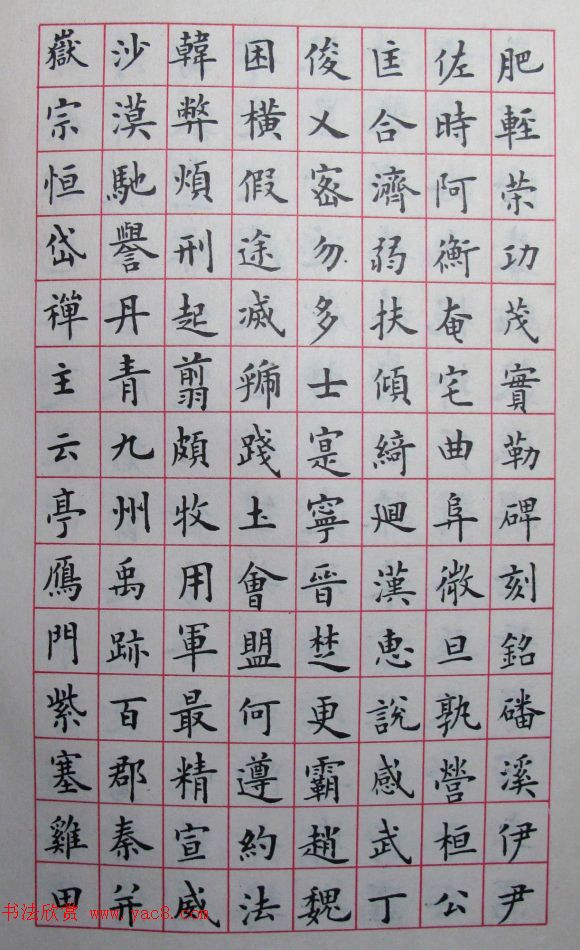 肥輕荣功茂實勒碑刻銘磻溪伊尹
佐時阿衡奄宅曲阜微旦孰營桓公
匡合濟弱扶傾綺迴漢惠說感武丁
俊乂密勿多士寔寧晉楚更霸趙魏
困橫假途滅虢踐土會盟何遵約法
韓弊煩刑起翦頗牧用軍最精宣威
沙漠馳譽丹青九州禹跡百郡秦并
嶽宗恒岱禪主云亭鴈門紫塞雞田
书法欣赏 www.yac8.com